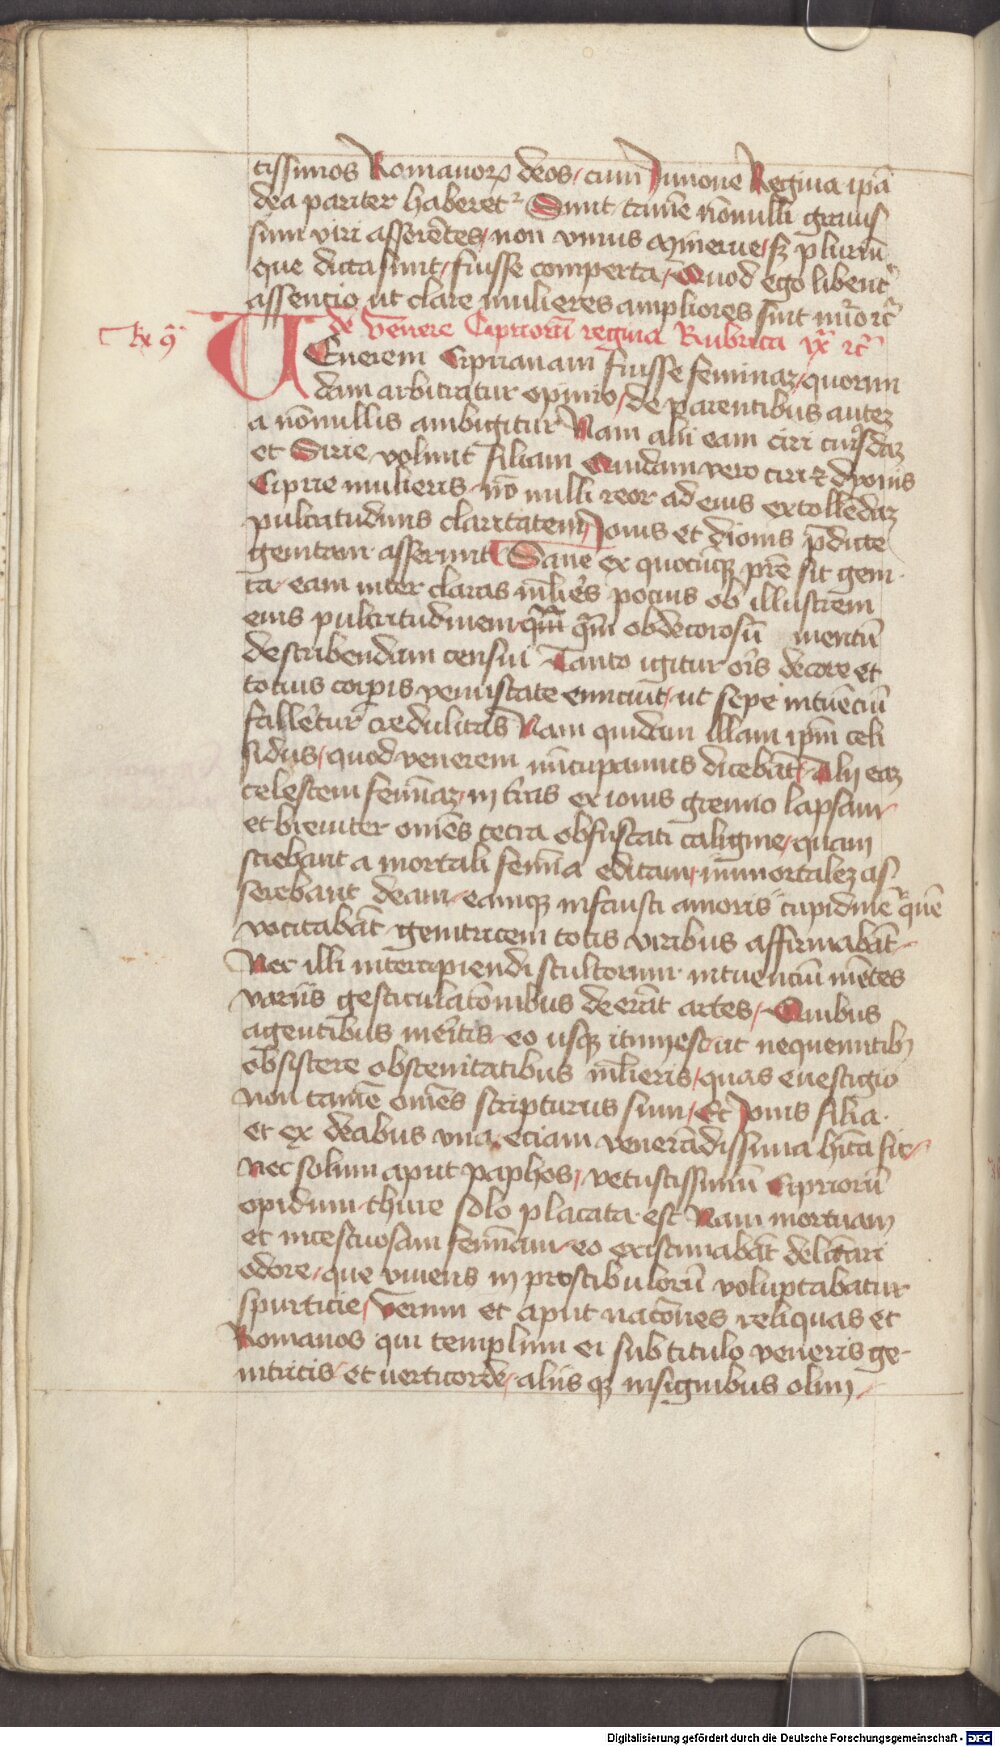 tissimos Romanoꝝ deos / cum Junone Regina ipā
dea pariter haberet᷑ Sunt tamē nōnulli grauis
simi viri asserētes / non vnius Minerue / sꝫ pluriū
que dicta sunt / fuisse comperta / Quod ego libent᷑
assentio ut clare mulieres ampliores sint nūo ꝛc̄
de venere Cipriorū regina Rubrica ix ꝛc̄
k 9
VEnerem Ciprianam fuisse feminaꝫ / quorun
dam arbitratur opinio / de parentibus auteꝫ
a nōnullis ambigitur Nam alii eam ciri cuiusdaꝫ
et Sirie volunt filiam Quidam vero ciri ⁊ dyonis
Ciprie mulieris nōnulli reor ad eius extollēdaꝫ
pulcritudinis claritatem / Jouis et dionis p̄dicte
genitam asserunt Sane ex quocūqꝫ pr̄e sit geni
ta / eam inter claras ml̄ies pocius ob illustrem
eius pulcritudinem qm̄ q̄m ob decorosū mentū
describendam censui Tanto igitur oris decore et
tocius corpis venustate enituit / ut sepe intuenciū
fallēretur credulitas Nam quidam illam ipm̄ celi
sidus / quod venerem nūcupamus dicebāt / Alij eaꝫ
celestem femīaꝫ in tr̄as ex iouis gremio lapsam /
et breuiter om̄es tetra obfuscati caligine / quam
sciebant a mortali femīa editam / immortaleꝫ as
serebant deam / eamqꝫ infausti amoris cupidinē quē
vocitabāt genitricem totis viribus affirmabāt /
Nec illi intercipiendi stultorum intuenciū mētes
variis gesticulatōnibus deerāt artes / Quibus
agentibus meritis eo usqꝫ itum est ut nequeuntibꝫ
obsistere obscenitatibus ml̄ieris / quas euestigio
non tamē om̄es scripturus sum / Et Jouis filia
et ex deabus vna eciam venerādissima hīta sit /
Nec solum aput paphos / vetustissimū Cipriorū
opidum thure solo placata est Nam mortuam
et incestuosam femīam / eo existimabāt delectari
odore / que viuens in prostibulorū voluptabatur
spurticie / Verum et aput nacōnes reliquas et
Romanos qui templum ei sub titulo veneris ge
nitricis / et verticorde / aliis qꝫ insignibus olim /
Digitalisierung gefördert durch die Deutsche Forschungsgemeinschaft - DFG